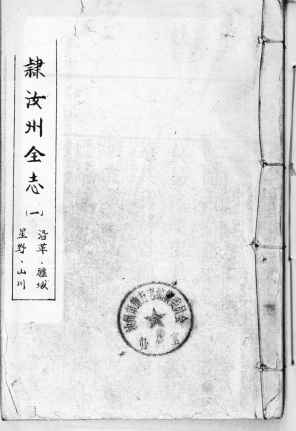 隸汝州全志
（一）
沿革、疆域
星野、山川